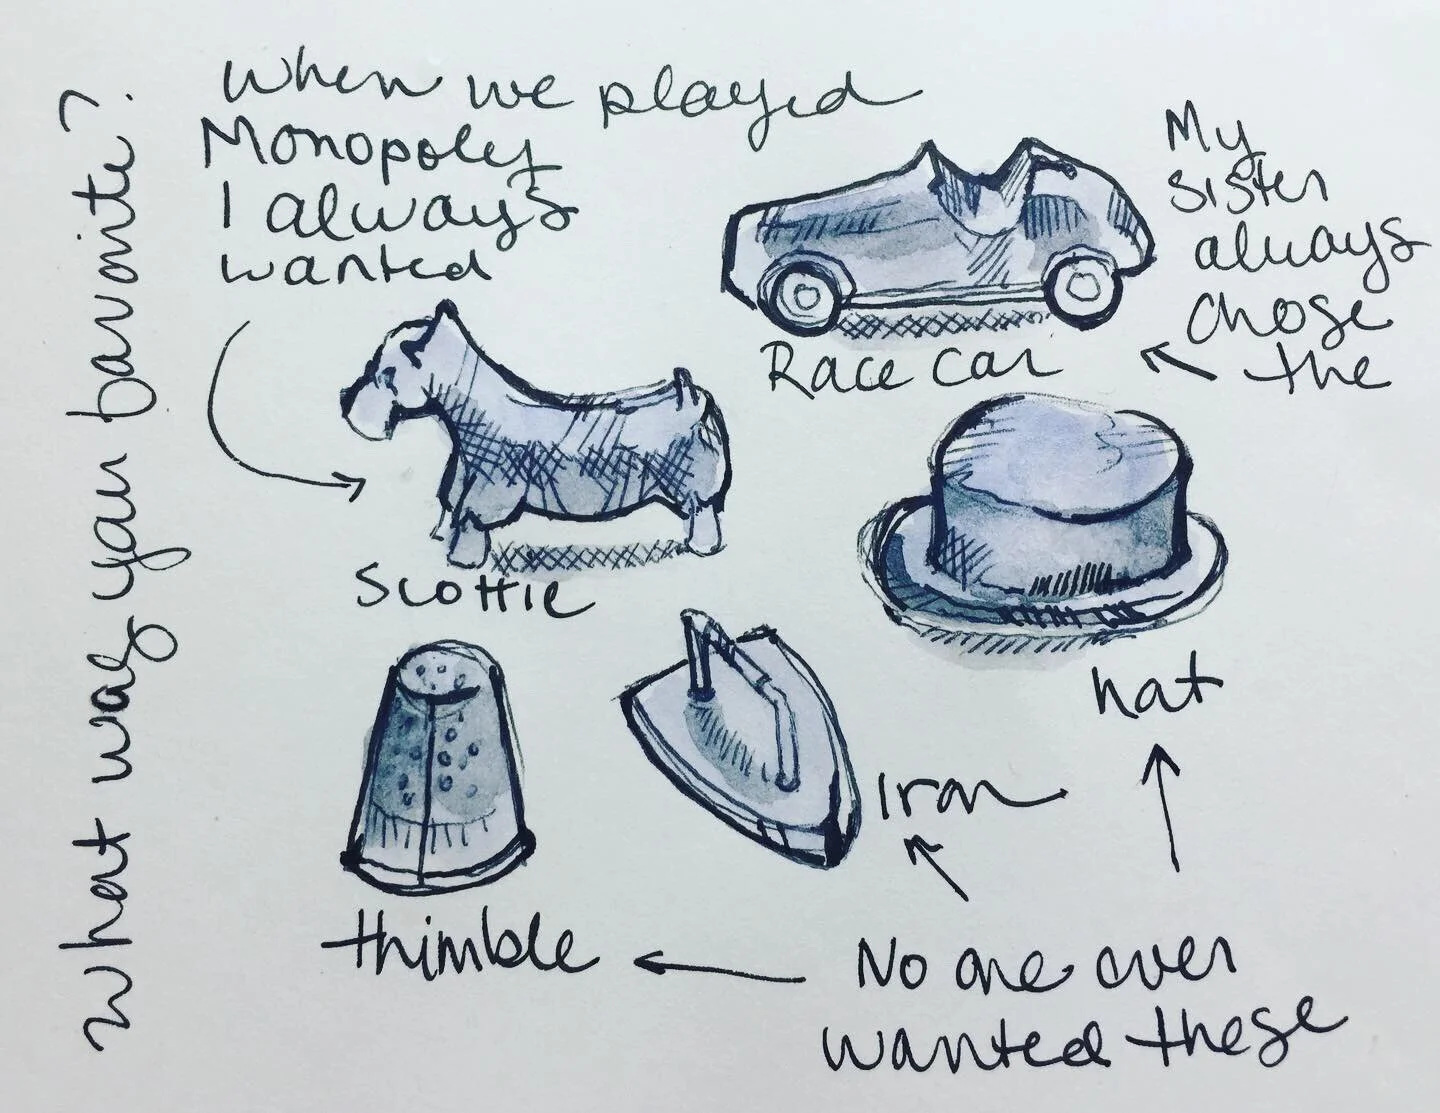 When we played
Monopoly
I always
wanted
My
sister
always
chose
the
Race car
Scottie
hat
Iron
thimble
No one ever
wanted these
What was your favorite?